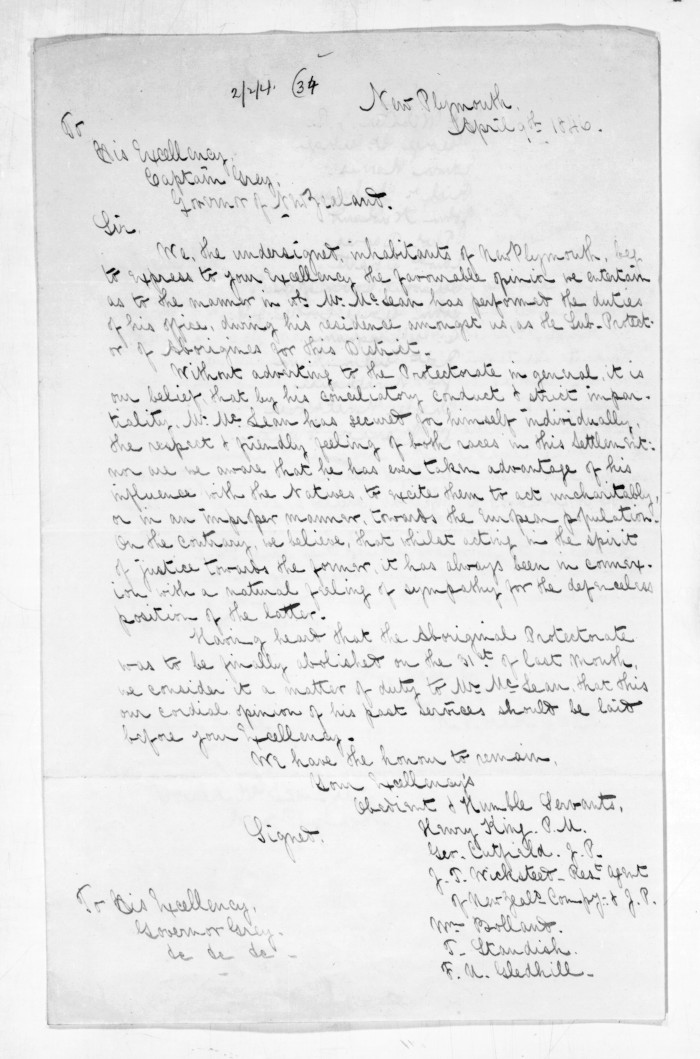 2/2/4. (34
New Plymouth,
April 9th 1846.
To
His Excellency,
Captain Grey,
Governor of New Zealand.
Sir,
We, the undersigned, inhabitants of New Plymouth, beg
to express to your Excellency the favourable opinion we entertain
as to the manner in wh. Mr. McLean has performed the duties
of his office, during his residence amongst us, as the Sub-Protect-
or of Aborigines for this District.
Without adverting to the Protectorate in general, it is
our belief, that by his conciliatory conduct & strict impar-
tiality, Mr. McLean has secured for himself individually,
the respect & friendly feeling of both races in this Settlement:
nor are we aware that he has ever taken advantage of his
influence with the Natives, to excite them to act uncharitably,
or in an improper manner, towards the European population.
On the contrary, we believe, that whilst acting in the spirit
of justice towards the former, it has always been in connex-
ion with a natural feeling of sympathy for the defenceless
position of the latter.
Having heard that the Aboriginal Protectorate
was to be finally abolished on the 31st of last month,
we consider it a matter of duty to Mr. McLean, that this
our cordial opinion of his past services should be laid
before your Excellency.
We have the honour to remain,
Your Excellency's
Obedient & Humble Servants,
Signed.
Henry King. P.M.
Geo. Cutfield. J.P.
J.T. Wicksteed - Rest. Agent
of New Zeald. Compy. & J.P.
Wm Bolland.
T. Standish.
F.U. Gledhill -
To His Excellency,
Governor Grey.
&c &c &c -